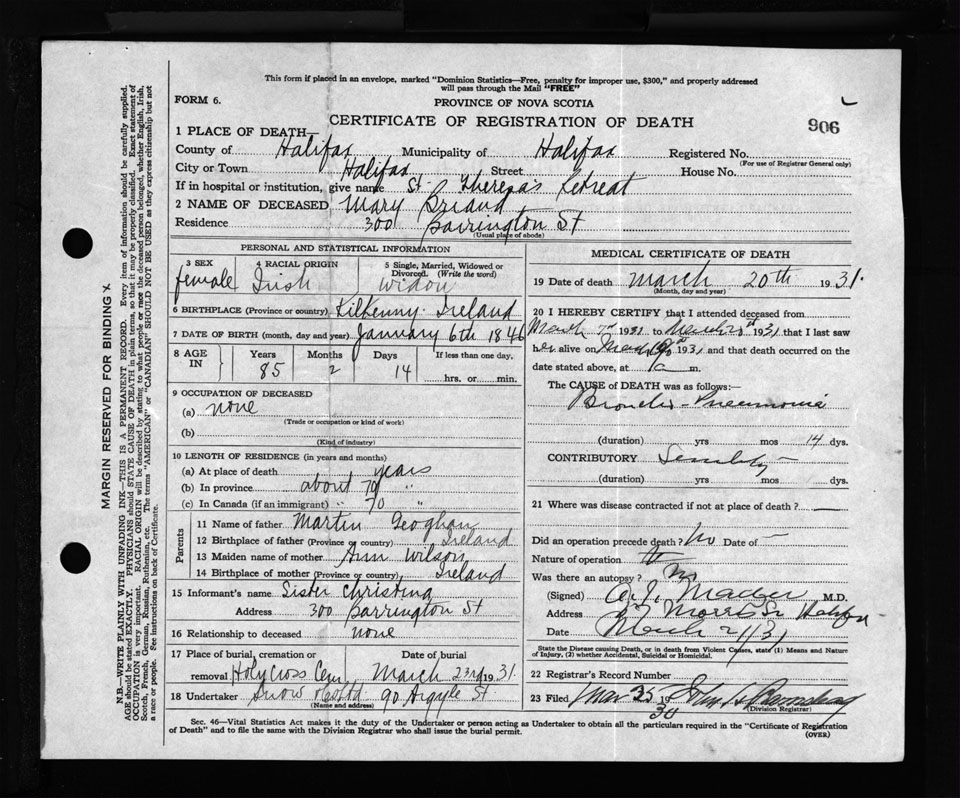 This form if placed in an envelope, marked "Dominion Statistics—Free, penalty for improper use, $300," and properly addressed
will pass through the Mail "FREE"
FORM 6.
PROVINCE OF NOVA SCOTIA
CERTIFICATE OF REGISTRATION OF DEATH
906
1 PLACE OF DEATH—
County of Halifax Municipality of Halifax Registered No.
(For use of Registrar General only)
City or Town Halifax Street House No.
If in hospital or institution, give name St. Theresa's Retreat
2 NAME OF DECEASED Mary Briand
Residence 300 Barrington St
(Usual place of abode)
PERSONAL AND STATISTICAL INFORMATION
3 SEX 4 RACIAL ORIGIN 5 Single, Married, Widowed or
Divorced. (Write the word)
female Irish Widow
6 BIRTHPLACE (Province or country) Kilkenny. Ireland
7 DATE OF BIRTH (month, day and year) January 6th 1846
8 AGE IN Years Months Days If less than one day,
85 2 14 hrs. or min.
9 OCCUPATION OF DECEASED
(a) none
(Trade or occupation or kind of work)
(b)
(Kind of industry)
10 LENGTH OF RESIDENCE (in years and months)
(a) At place of death years
(b) In province about 70 "
(c) In Canada (if an immigrant) " 70 "
Parents
11 Name of father Martin Geoghan
12 Birthplace of father (Province or country) Ireland
13 Maiden name of mother Ann Wilson
14 Birthplace of mother (Province or country) Ireland
15 Informant's name Sister Christina
Address 300 Barrington St
16 Relationship to deceased none
17 Place of burial, cremation or Date of burial
removal Holy Cross Cem March 23rd 1931.
18 Undertaker Snow & Co Ltd 90 Argyle St
(Name and address)
MEDICAL CERTIFICATE OF DEATH
19 Date of death March 20th 1931.
(Month, day and year)
20 I HEREBY CERTIFY that I attended deceased from
March 7 1931 to 1931 that I last saw
her alive on 1931 and that death occurred on
date stated above, at m.
The CAUSE of DEATH was as follows:—
Broncho-Pneumonia
(duration) yrs mos 14 dys.
CONTRIBUTORY Senility
(duration) yrs mos dys.
21 Where was disease contracted if not at place of death? —
Did an operation precede death? No Date of —
Nature of operation
Was there an autopsy? No
(Signed) M.D.
Address Morris St Halifax
Date March 21/31
State the Disease Causing Death, or in Death from Violent Causes, state (1) Means and Nature
of Injury, (2) whether Accidental, Suicidal or Homicidal.
22 Registrar's Record Number
23 Filed Mar 19
(Division Registrar)
Sec. 46—Vital Statistics Act makes it the duty of the Undertaker or person acting as Undertaker to obtain all the particulars required in the "Certificate of Registration
of Death" and to file the same with the Division Registrar who shall issue the burial permit.
(OVER)
MARGIN RESERVED FOR BINDING
N.B.—WRITE PLAINLY WITH UNFADING INK—THIS IS A PERMANENT RECORD. Every item of information should be carefully supplied.
AGE should be stated EXACTLY. PHYSICIANS should STATE CAUSE OF DEATH in plain terms, so that it may be properly classified. Exact statement of
OCCUPATION is very important. RACIAL ORIGIN will be described by stating to what people or race the deceased person belonged, whether English, Irish,
Scotch, French, German, Russian, Ruthenian, etc. The terms "AMERICAN" or "CANADIAN" SHOULD NOT BE USED as they express citizenship but not
a race or people. See instructions on back of Certificate.